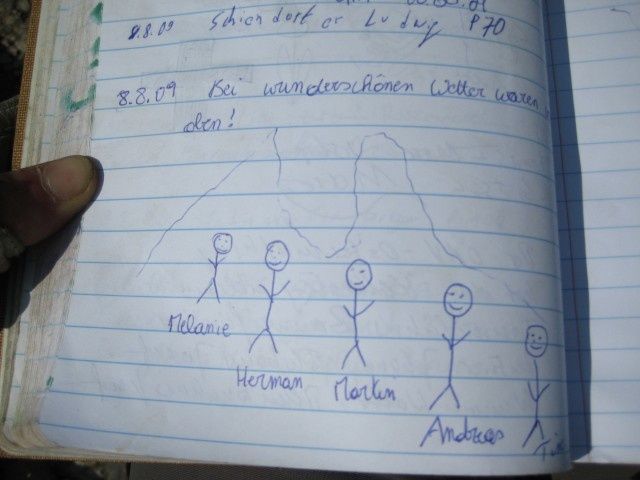 8.8.09 Ludwig P70
8.8.09 Bei wunderschönen Wetter waren
den!
Melanie
Herman
Martin
Andreas